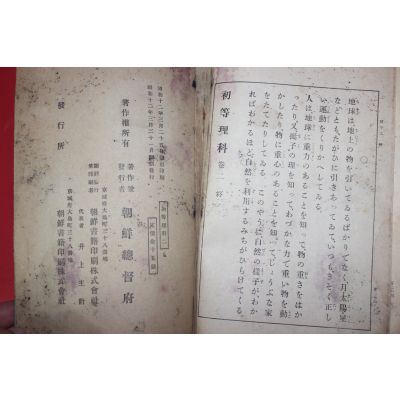 地球は、地上の物を引いてゐるばかりでなく、月太陽星
などともたがひに引きあって、いつもきそく正し
い運動をくりかへしてゐる。
人は、地球に重力のあることを知って、物の重さをはか
ったり、又、梃子の理を知って、わづかな力で重い物を動
かしたり、物に重心のあることを知って、じょうぶな家
をたてたりしてゐる。このやうに自然の様子がわか
ればわかるほど、自然を利用するみちがひらけてくる。
初等理科 巻 終
昭和十二年三月二十五日
昭和十二年三月二十八日
著作權所有
著作兼
發行者
朝鮮總督府
京城府大島町三十八番地
朝鮮書籍印刷株式會社
代表者 井上主計
京城府大島町三十八番地
發行所
朝鮮書籍印刷株式會社